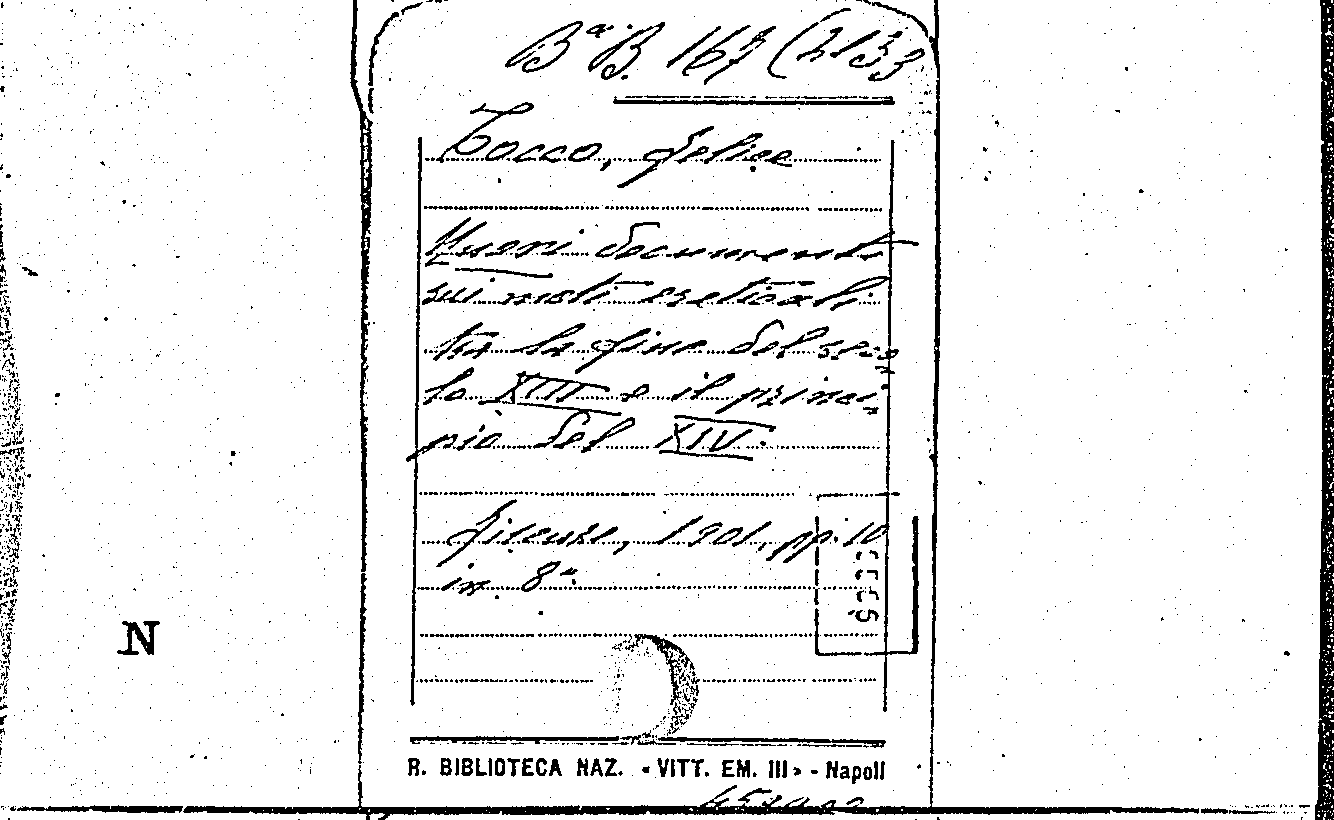 Bª B. 167 (2133
Tocco, Felice
Nuovi documenti
sui moti ereticali
tra la fine del seco=
lo XIII e il princi=
pio del XIV.
Firenze, 1901, pp. 10
in 8º.
N
R. BIBLIOTECA NAZ. «VITT. EM. III» - Napoli